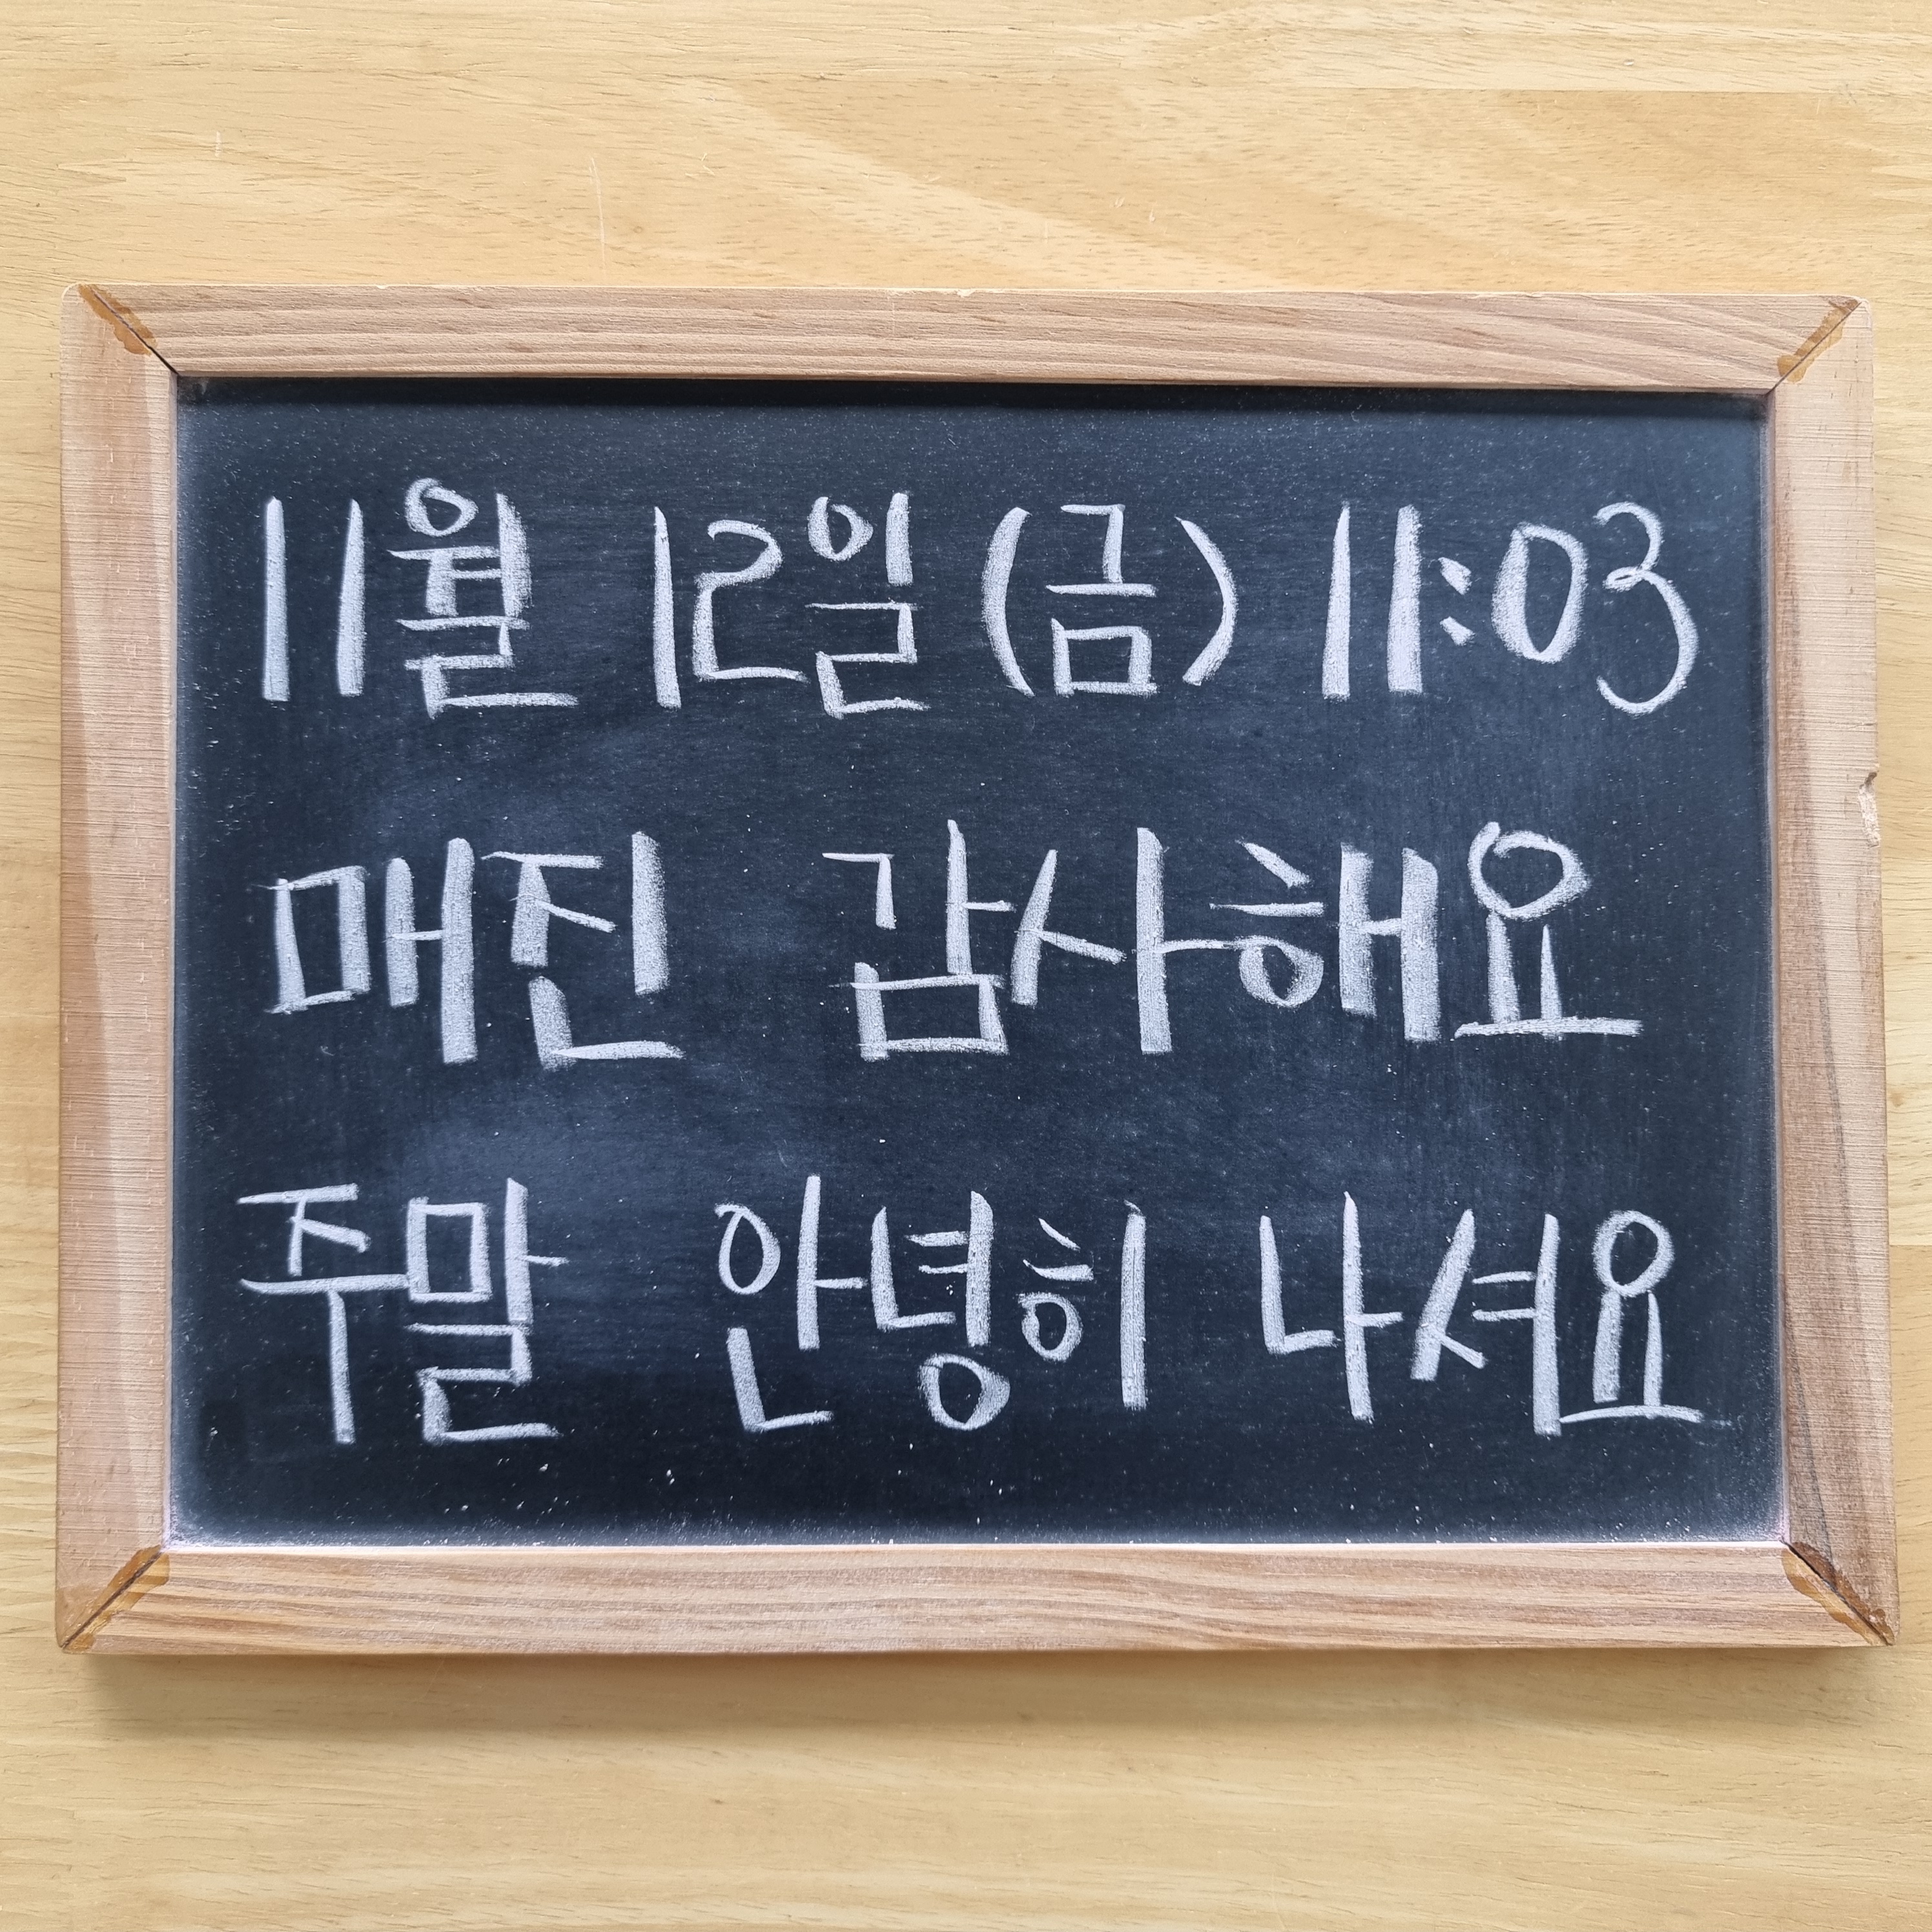 11월 12일 (금) 11:03
매진 감사해요
주말 안녕히 나셔요